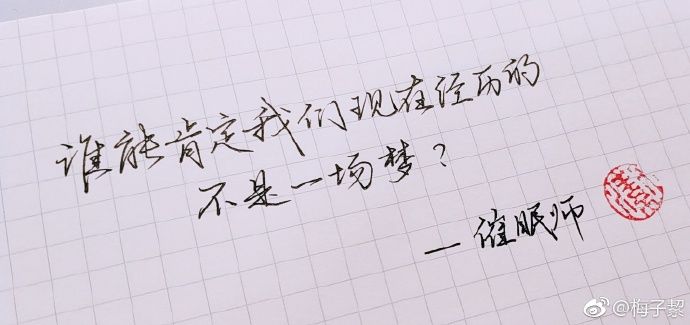 谁能肯定我们现在经历的
不是一场梦？
—催眠师
@梅子黎